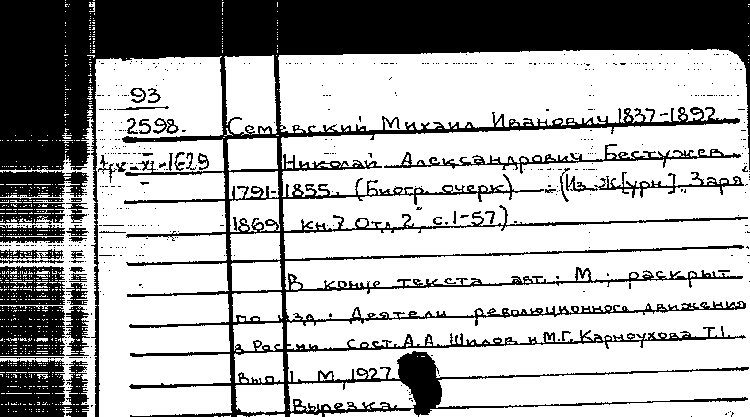 93
2598.
Семевский, Михаил Иванович, 1837-1892
Николай Александрович Бестужев
1791-1855. (Биогр. очерк) - (Из ж[урн]. Заря
1869 кн.7 Отд. 2, с.1-57).
В конце текста авт.: М.; раскрыт
по изд.: Деятели революционного движения
в России Сост. А.А. Шилов и М.Г. Карнаухова Т.1.
Вып. 1. М., 1927
Вырезка.